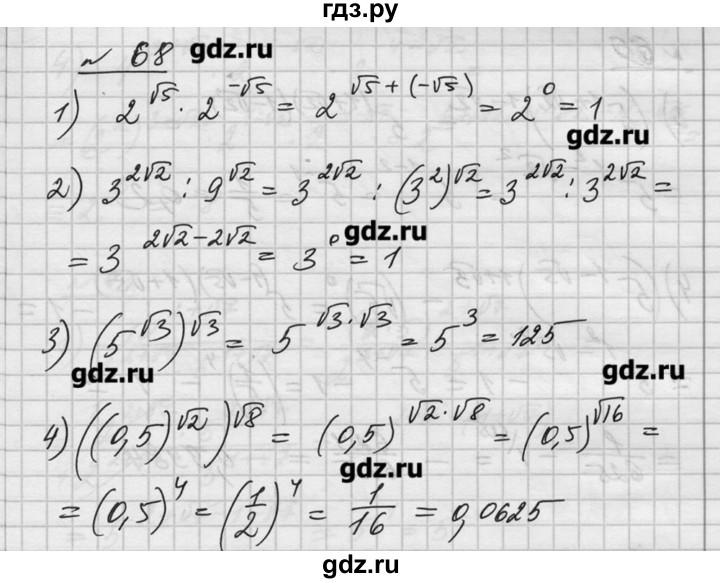 гдз.ру
№ 68 gdz.ru
1) 2^√5 · 2^-√5 = 2^√5+(-√5) = 2^0 = 1
gdz.ru
2) 3^2√2 : 9^√2 = 3^2√2 : (3^2)^√2 = 3^2√2 : 3^2√2 =
= 3^2√2-2√2 = 3^0 = 1 gdz.ru
3) (5^√3)^√3 = 5^√3·√3 = 5^3 = 125
gdz.ru gdz.ru
4) ((0,5)^√2)^√8 = (0,5)^√2·√8 = (0,5)^√16 =
gdz.ru
= (0,5)^4 = (1/2)^4 = 1/16 = 0,0625
gdz.ru